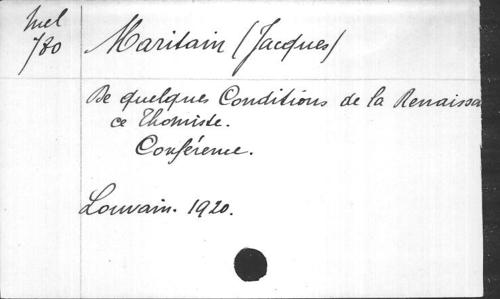 Mel
780
Maritain (Jacques)
De quelques Conditions de la Renaissan
ce Thomiste.
Conférence.
Louvain. 1920.